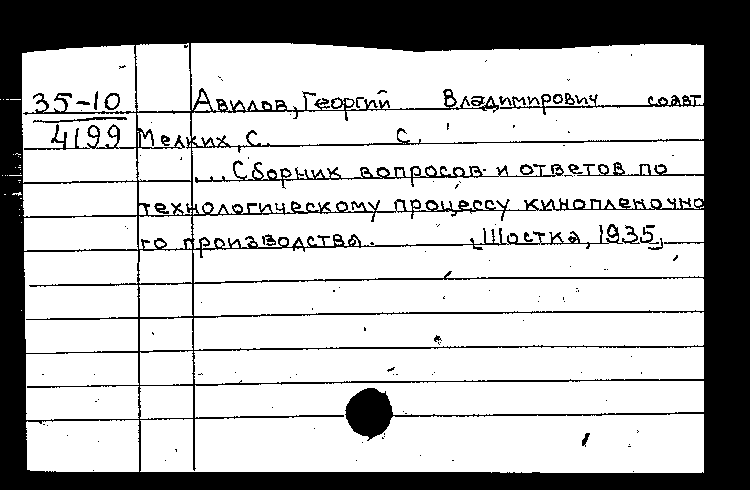 35-10 Авилов, Георгий Владимирович соавт.
4199 Мелких, С. С.
... Сборник вопросов и ответов по
технологическому процессу кинопленочно
го производства. [Шостка, 1935]